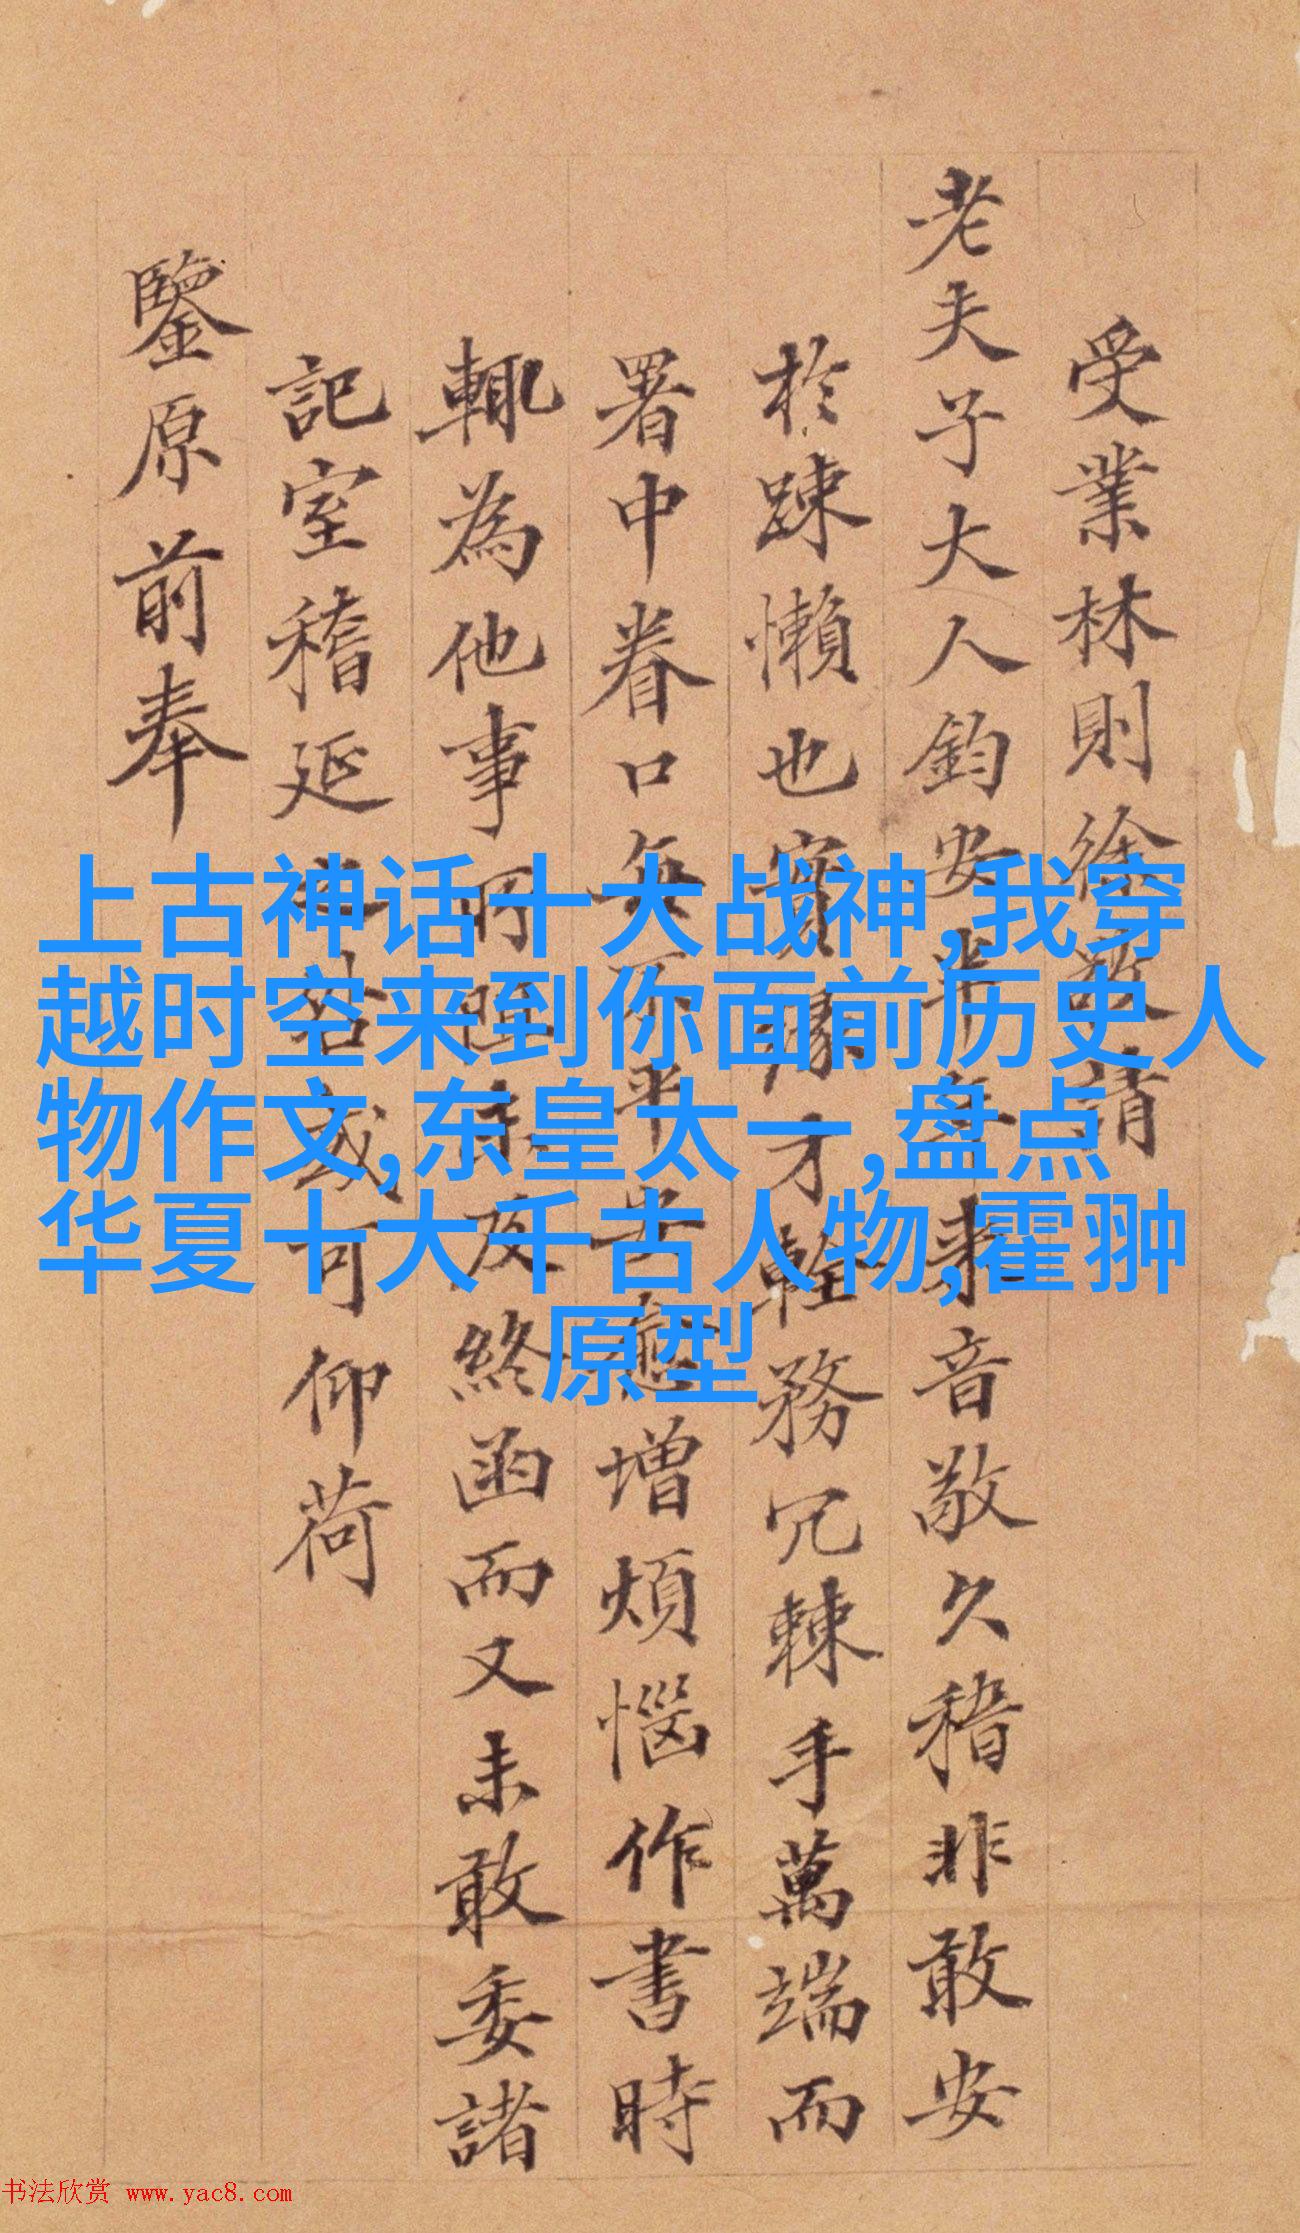 受業林則徐敬請
老夫子大人鈞安半年來音敬久稽非敢安
於踈懶也實緣才輇務冗棘手萬端而
署中眷口每不平安愈增煩惱作書時
輒為他事所阻未及終函而又未敢委諸
記室稽延之咎或可仰荷
鑒原前奉
上古神话十大战神,我穿
越时空来到你面前历史人
物作文,东皇太一,盘点
华夏十大千古人物,霍翀
原型
书法欣赏 www.yac8.com